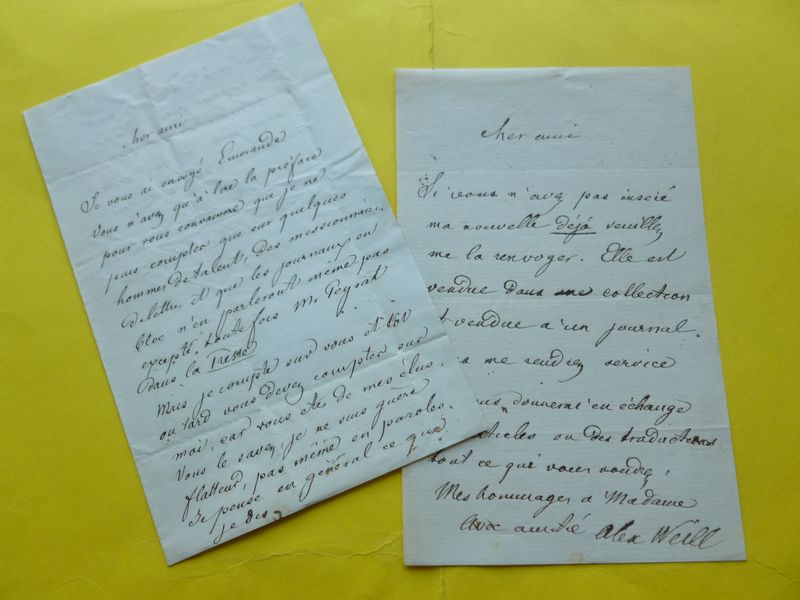 cher ami
Je vous ai envoyé Emeraude
Vous n'avez qu'à lire la préface
pour vous convaincre que je ne
puis compter que sur quelques
hommes de talent, des missionnaires
de lettre, et que les journaux en
bloc n'en parleront même pas
excepté toutefois Mr Peyrat
dans la Presse
Mais je compte sur vous et tôt
ou tard vous devez compter sur
moi, car vous etes de mes élus.
Vous le savez, je ne suis guère
flatteur, pas même en paroles.
Je pense en général ce que
je dis
cher ami
Si vous n'avez pas inséré
ma nouvelle déjà veuillez
me la renvoyer. Elle est
vendue dans une collection
t vendue a un journal.
s me rendrez service
us donnerai en échange
ticles ou des traductions
tout ce que vous voudrez,
Mes hommages a Madame
avec amitié Alex Weill